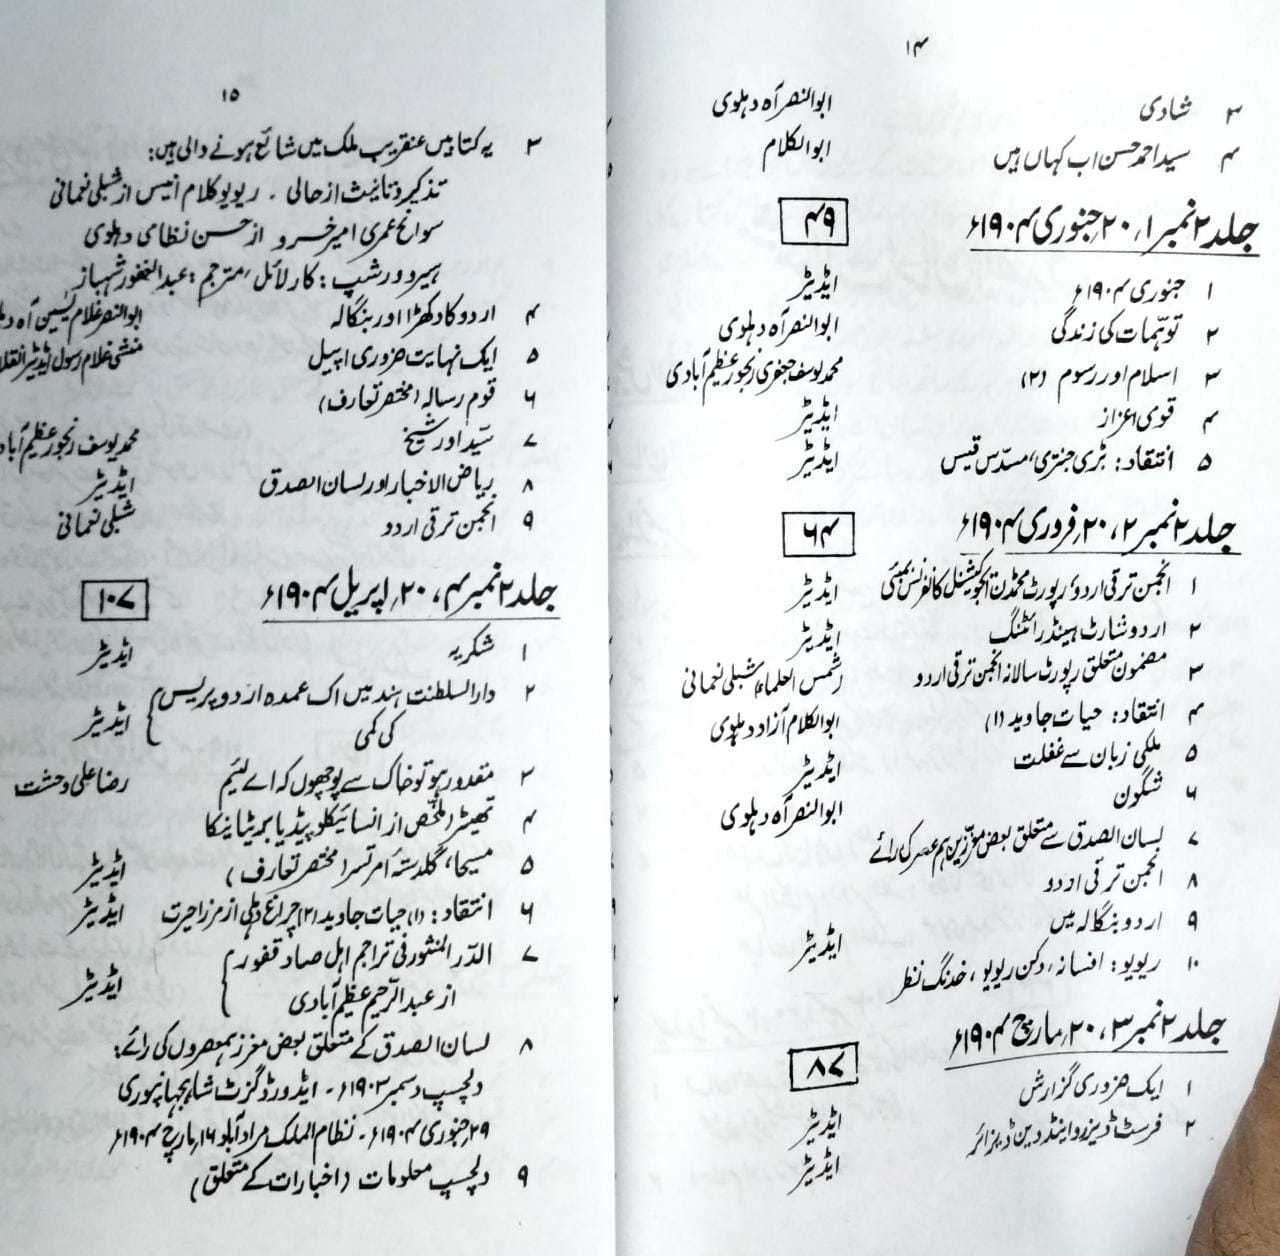 ۱۴
۳ شادی ابوالنصر آہ دہلوی
۴ سید احمد حسن اب کہاں ہیں ابوالکلام
جلد ۲ نمبر ۱، ۲۰؍جنوری ۱۹۰۴ء ۴۹
۱ جنوری ۱۹۰۴ء ایڈیٹر
۲ توہّمات کی زندگی ابوالنصر آہ دہلوی
۳ اسلام اور رسوم (۲) محمد یوسف جعفری رنجور عظیم آبادی
۴ قومی اعزاز ایڈیٹر
۵ انتقاد: بڑی جنتری، مسدّس قیس ایڈیٹر
جلد ۲ نمبر ۲، ۲۰؍فروری ۱۹۰۴ء ۶۴
۱ انجمن ترقی اردو، رپورٹ محمڈن ایجوکیشنل کانفرنس بمبئی ایڈیٹر
۲ اردو شارٹ ہینڈ رائٹنگ ایڈیٹر
۳ مضمون متعلق رپورٹ سالانہ انجمن ترقی اردو (شمس العلماء) شبلی نعمانی
۴ انتقاد: حیات جاوید (۱) ابوالکلام آزاد دہلوی
۵ ملکی زبان سے غفلت ایڈیٹر
۶ شگون ابوالنصر آہ دہلوی
۷ لسان الصدق سے متعلق بعض معزّزین ہم عصر کی رائے
۸ انجمن ترقی اردو
۹ اردو بنگالہ میں ایڈیٹر
۱۰ ریویو: افسانہ، دکن ریویو، خدنگ نظر
جلد ۲ نمبر ۳، ۲۰؍مارچ ۱۹۰۴ء ۸۷
۱ ایک ضروری گزارش ایڈیٹر
۲ فرسٹ ڈیزرو اینڈ دین ڈیزائر ایڈیٹر
۱۵
۳ یہ کتابیں عنقریب ملک میں شائع ہونے والی ہیں:
تذکیر و تانیث از حالی ۔ ریویو کلام انیس از شبلی نعمانی
سوانح عمری امیر خسرو از حسن نظامی دہلوی
ہیرو ورشپ: کارلائل، مترجم: عبدالغفور شہباز
۴ اردو کا دکھڑا اور بنگالہ ابوالنصر غلام یٰسین آہ
۵ ایک نہایت ضروری اپیل منشی غلام رسول ایڈیٹر
۶ قوم رسالہ (مختصر تعارف)
۷ سیّد اور شیخ محمد یوسف رنجور عظیم
۸ ریاض الاخبار اور لسان الصدق ایڈیٹر
۹ انجمن ترقی اردو شبلی نعمانی
جلد ۲ نمبر ۴، ۲۰؍اپریل ۱۹۰۴ء ۱۰۷
۱ شکریہ ایڈیٹر
۲ دارالسلطنت ہند میں اک عمدہ اردو پریس
کی کمی ایڈیٹر
۳ مقدور ہو تو خاک سے پوچھوں کہ اے لئیم رضا علی وحشت
۴ تھیٹر (ملخّص از انسائیکلوپیڈیا برٹیانیکا
۵ مسیحا، گلدستۂ امرتسر (مختصر تعارف) ایڈیٹر
۶ انتقاد: (۱) حیات جاوید (۲) چراغ دہلی از مرزا حیرت ایڈیٹر
۷ الدّر المنثور فی تراجم اہل صادقفور
از عبدالرّحیم عظیم آبادی ایڈیٹر
۸ لسان الصدق کے متعلق بعض معزز ہمعصروں کی رائے:
دلچسپ دسمبر ۱۹۰۳ء ۔ ایڈورڈ گزٹ شاہجہانپوری
۲۹؍جنوری ۱۹۰۴ء ۔ نظام الملک مراد آباد ۱۶؍مارچ ۱۹۰۴ء
۹ دلچسپ معلومات (اخبارات کے متعلق)